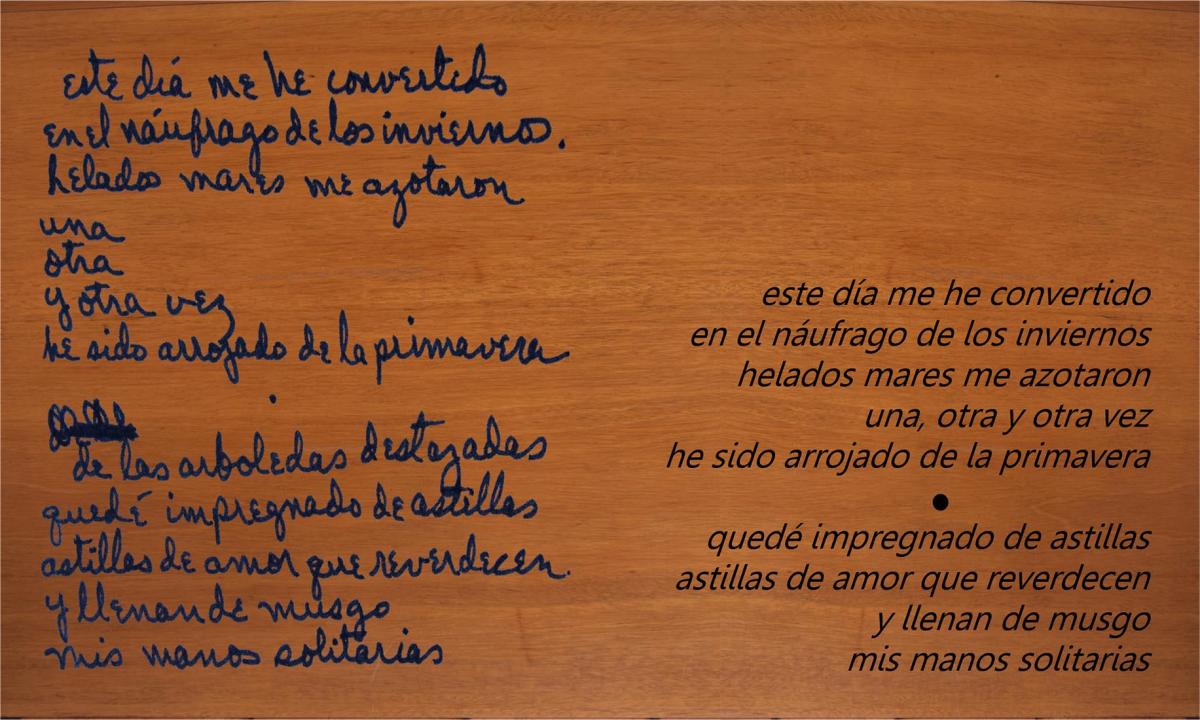 este día me he convertido
en el náufrago de los inviernos.
helados mares me azotaron
una
otra
y otra vez
he sido arrojado de la primavera
.
de las arboledas destazadas
quedé impregnado de astillas
astillas de amor que reverdecen.
y llenan de musgo
mis manos solitarias
este día me he convertido
en el náufrago de los inviernos
helados mares me azotaron
una, otra y otra vez
he sido arrojado de la primavera
●
quedé impregnado de astillas
astillas de amor que reverdecen
y llenan de musgo
mis manos solitarias